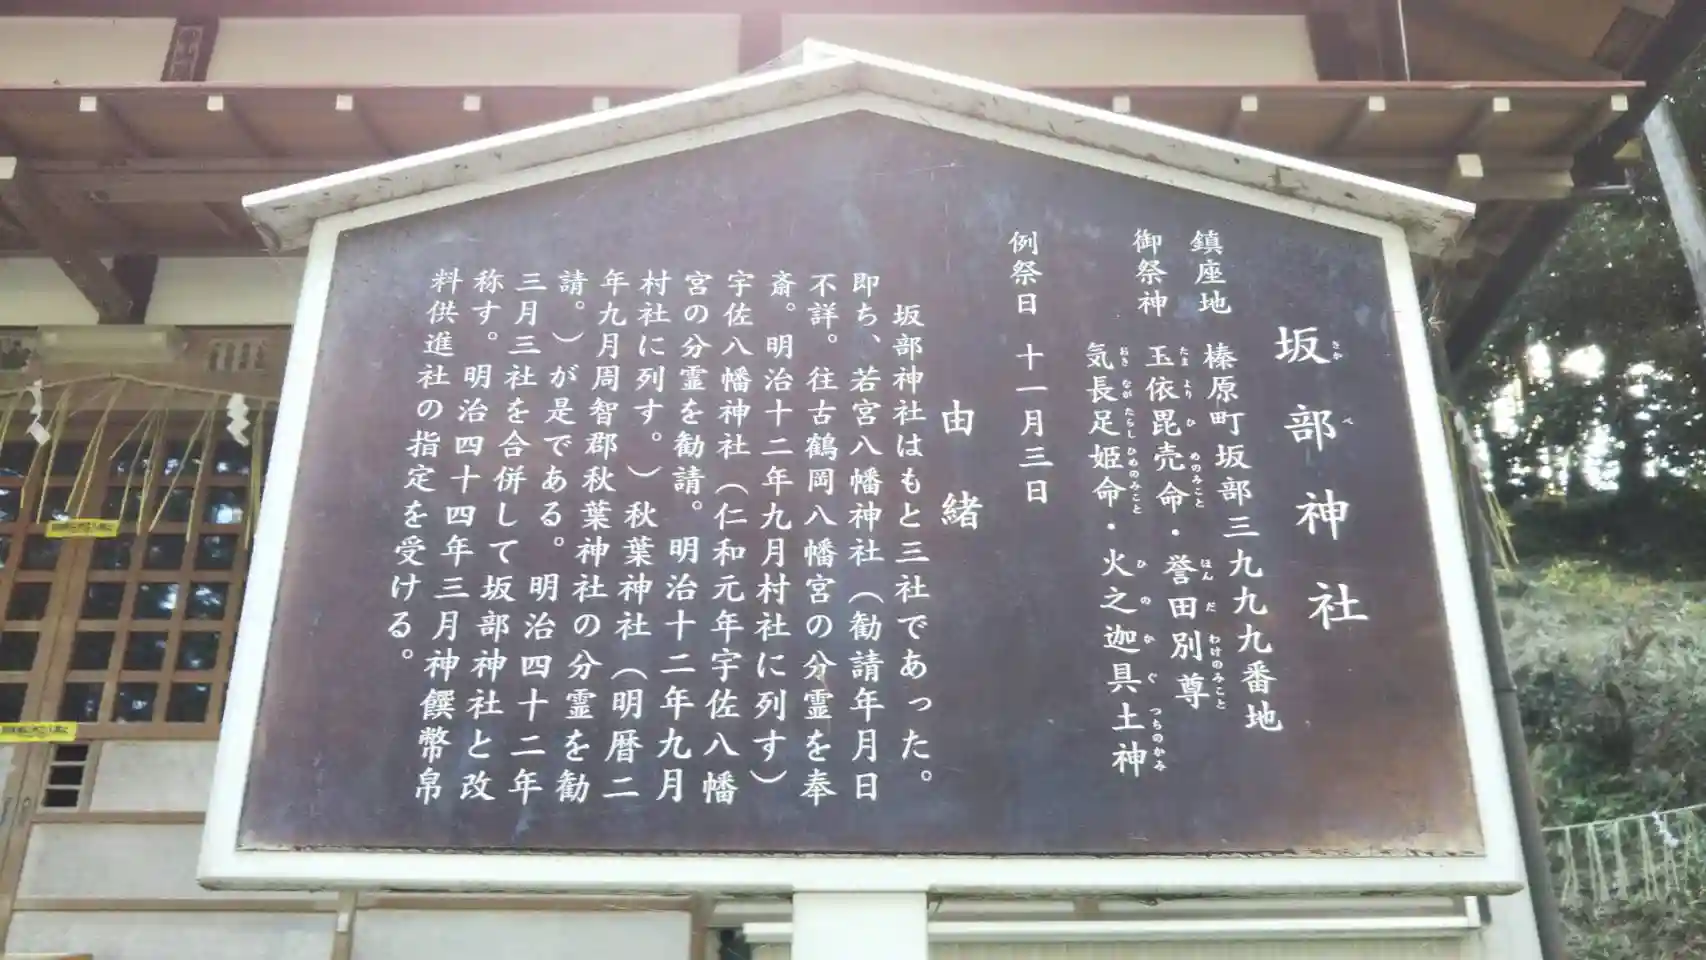 坂部神社
鎮座地 榛原町坂部三九九九番地
御祭神 玉依毘売命・誉田別尊
気長足姫命・火之迦具土神
例祭日 十一月三日
由緒
坂部神社はもと三社であった。
即ち、若宮八幡神社（勧請年月日
不詳。往古鶴岡八幡宮の分霊を奉
斎。明治十二年九月村社に列す）
宇佐八幡神社（仁和元年宇佐八幡
宮の分霊を勧請。明治十二年九月
村社に列す。）秋葉神社（明暦二
年九月周智郡秋葉神社の分霊を勧
請。）が是である。明治四十二年
三月三社を合併して坂部神社と改
称す。明治四十四年三月神饌幣帛
料供進社の指定を受ける。